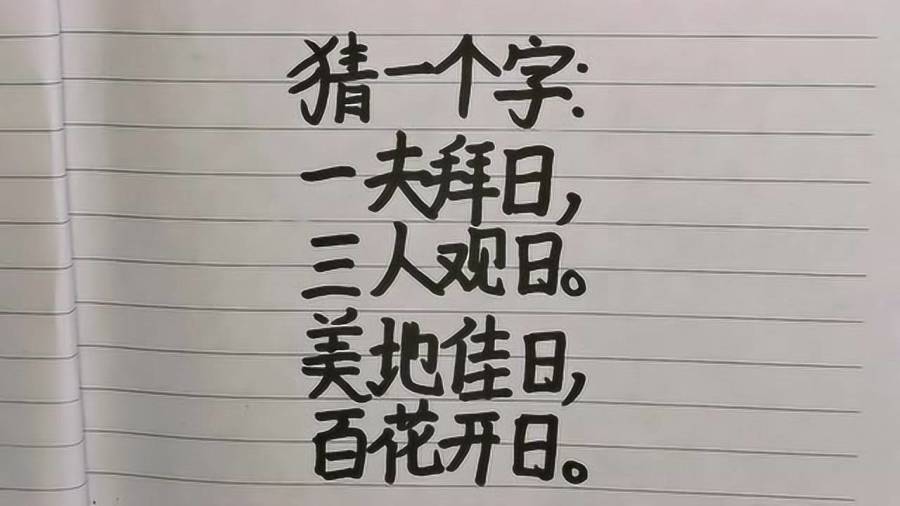 猜一个字:
一夫拜日,
三人观日。
美地佳日,
百花开日。